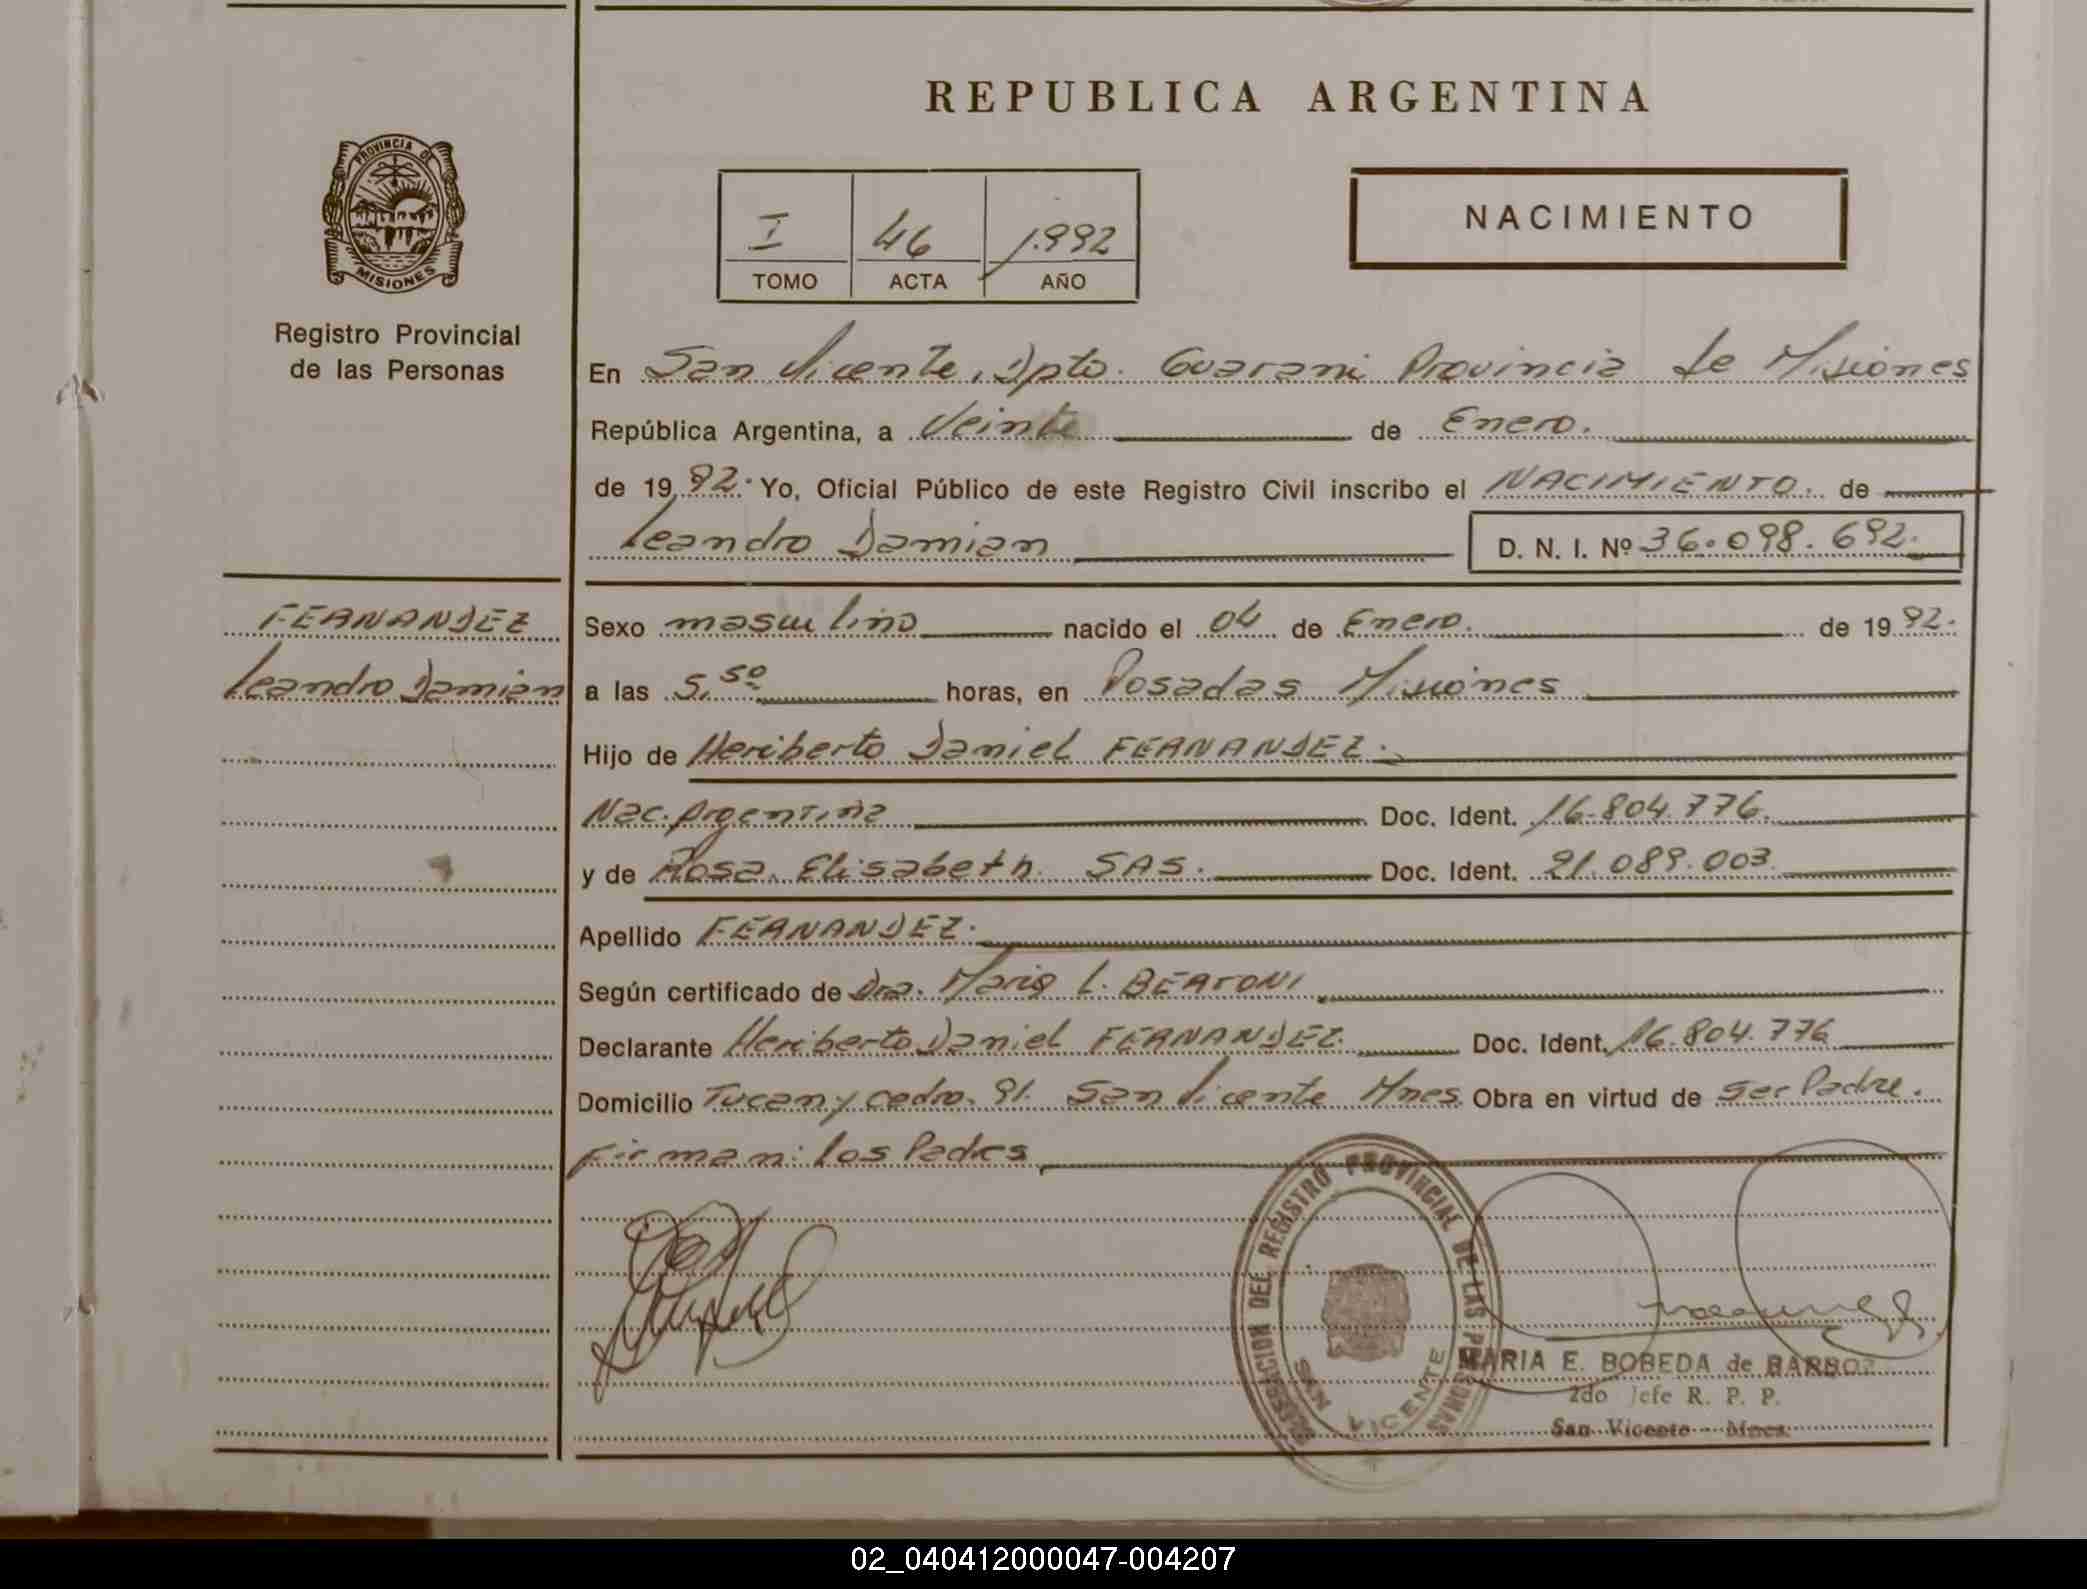 REPUBLICA ARGENTINA
PROVINCIA DE
MISIONES
Registro Provincial
de las Personas
I 46 1.992
TOMO ACTA AÑO
NACIMIENTO
En San Vicente, Dpto. Guarani Provincia de Misiones
República Argentina, a Veinte de Enero.
de 19 92. Yo, Oficial Público de este Registro Civil inscribo el NACIMIENTO. de
Leandro Damian D. N. I. Nº 36.098.692.
FERNANDEZ
Leandro Damian
Sexo masculino nacido el 04 de Enero. de 19 92.
a las 5.50 horas, en Posadas Misiones
Hijo de Heriberto Daniel FERNANDEZ.
Nac. Argentina Doc. Ident. 16.804.776.
y de Rosa Elisabeth SAS. Doc. Ident. 21.089.003.
Apellido FERNANDEZ.
Según certificado de Dra. Maria L.
Declarante Heriberto Daniel FERNANDEZ. Doc. Ident. 16.804.776
Domicilio Tucan y cedro. 91. San Vicente Mnes. Obra en virtud de ser Padre.
Firman: los Padres
DEL REGISTRO PROVINCIAL DE LAS PERSONAS
SAN VICENTE
MARIA E. BOBEDA de
2do Jefe R. P. P.
San Vicente - Mnes.
02_040412000047-004207